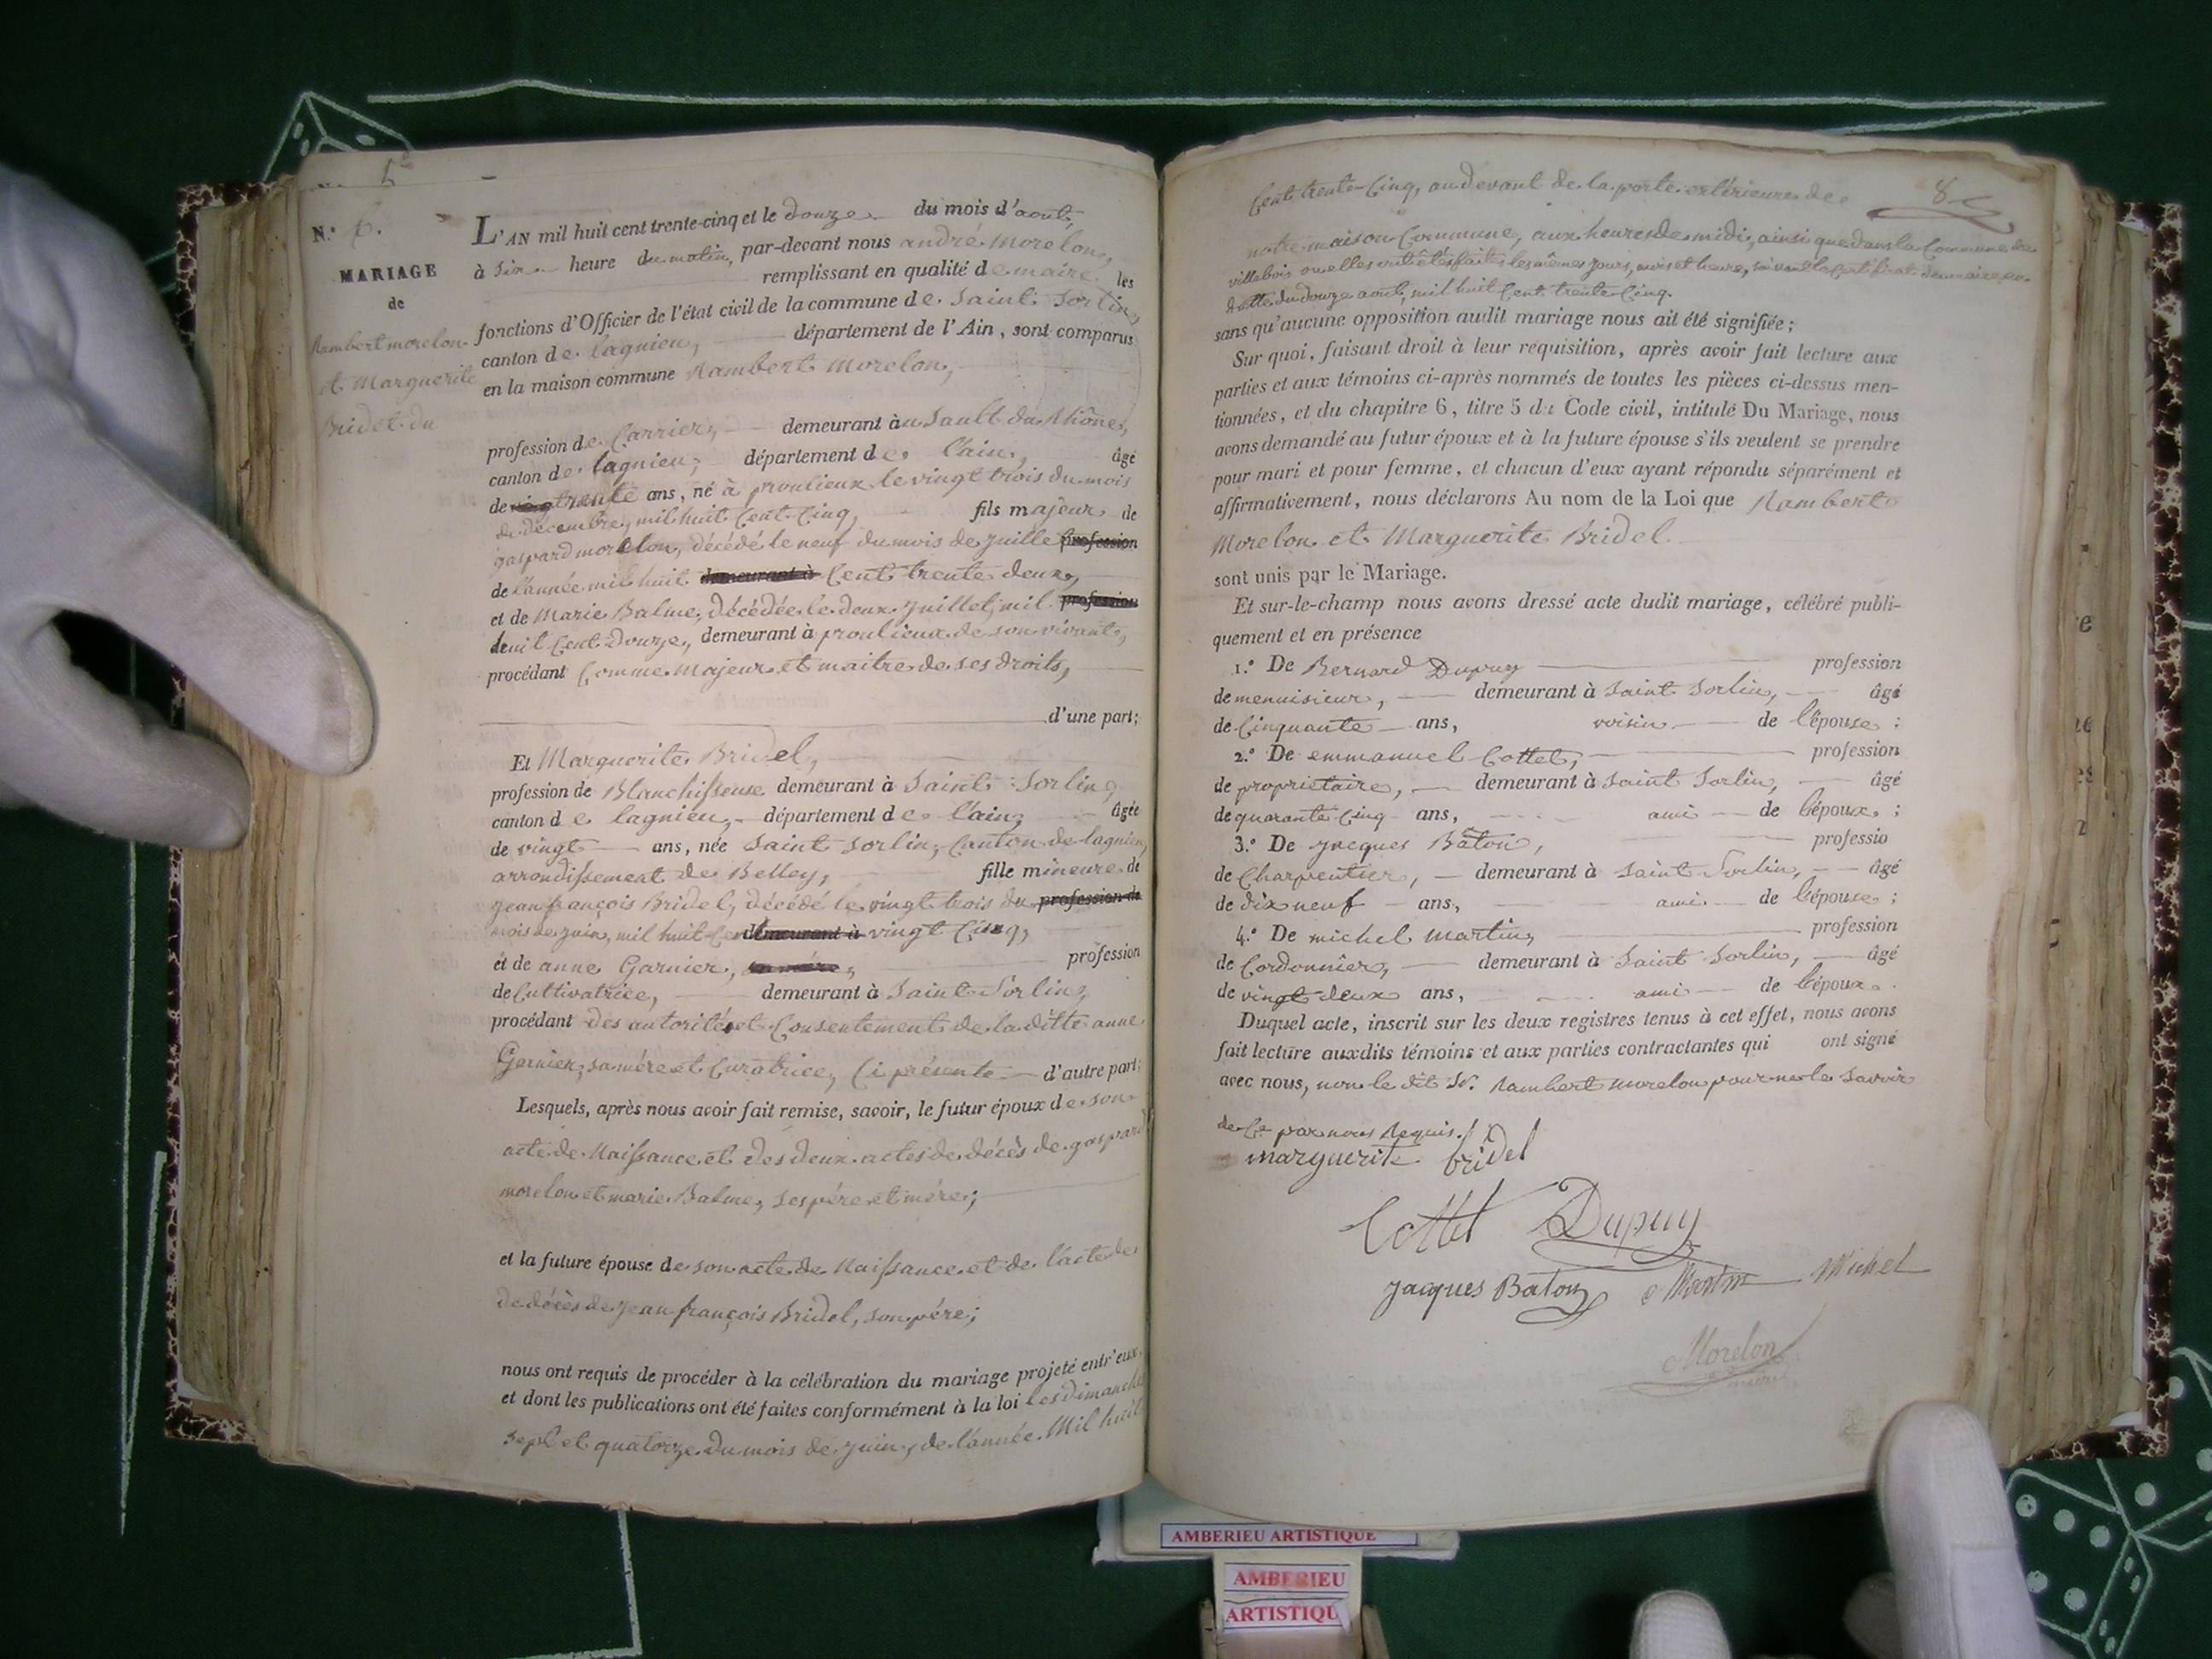 N.º 6.
MARIAGE
de
Rambert morelon
et Marguerite
Bridel du
L'AN mil huit cent trente-cinq et le douze du mois d'aout,
à six heure du matin, par-devant nous andré morelon,
remplissant en qualité de maire les
fonctions d'Officier de l'état civil de la commune de Saint Sorlin,
canton de lagnieu, département de l'Ain, sont comparus
en la maison commune Rambert Morelon,
profession de Carrier, demeurant au Sault du Rhône,
canton de lagnieu, département de l'ain, âgé
de trente ans, né à proulieux le vingt trois du mois
de décembre, mil huit Cent Cinq, fils majeur de
gaspard morelon, décédé le neuf du mois de juille profession
de l'année mil huit demeurant à Cent trente deux,
et de Marie Balme, décédée le deux juillet, mil profession
huit Cent Douze, demeurant à proulieux de son vivant,
procédant Comme Majeur et maitre de ses droits,
d'une part;
Et Marguerite Bridel,
profession de Blanchisseuse demeurant à Saint Sorlin,
canton de lagnieu, département de l'ain, âgée
de vingt ans, née Saint Sorlin, Canton de lagnieu,
arrondissement de Belley, fille mineure de
jean françois Bridel, décédé le vingt trois du profession de
mois de juin, mil huit Cent demeurant à vingt Cinq,
et de anne Garnier, sa mère, profession
de Cultivatrice, demeurant à Saint Sorlin,
procédant des autorités et Consentement de la ditte anne
Garnier, sa mère et Curatrice, Ci présente d'autre part;
Lesquels, après nous avoir fait remise, savoir, le futur époux de son
acte de Naissance et des deux actes de décès de gaspard
morelon et marie Balme, ses père et mère;
et la future épouse de son acte de Naissance et de l'acte de
de décès de jean françois Bridel, son père;
nous ont requis de procéder à la célébration du mariage projeté entr'eux,
et dont les publications ont été faites conformément à la loi les dimanche
sept et quatorze du mois de juin, de l'année Mil huit
8
Cent trente-Cinq, au devant de la porte extérieure de
notre maison Commune, aux heures de midi, ainsi que dans la Commune de
villebois ou elles ont étés faites les mêmes jours, mois et heure, suivant le Certificat du maire en
datte du douze aout, mil huit Cent trente Cinq.
sans qu'aucune opposition audit mariage nous ait été signifiée;
Sur quoi, faisant droit à leur requisition, après avoir fait lecture aux
parties et aux témoins ci-après nommés de toutes les pièces ci-dessus men-
tionnées, et du chapitre 6, titre 5 du Code civil, intitulé Du Mariage, nous
avons demandé au futur époux et à la future épouse s'ils veulent se prendre
pour mari et pour femme, et chacun d'eux ayant répondu séparément et
affirmativement, nous déclarons Au nom de la Loi que Rambert
Morelon et Marguerite Bridel
sont unis par le Mariage.
Et sur-le-champ nous avons dressé acte dudit mariage, célébré publi-
quement et en présence
1.º De Bernard Dupuy profession
de menuisieur, demeurant à Saint Sorlin, âgé
de Cinquante ans, voisin de l'épouse;
2.º De emmanuel Cottet, profession
de propriétaire, demeurant à Saint Sorlin, âgé
de quarante Cinq ans, ami de l'époux;
3.º De jacques Bâton, professio
de Charpentier, demeurant à Saint Sorlin, âgé
de dix neuf ans, ami de l'épouse;
4.º De michel Martin, profession
de Cordonnier, demeurant à Saint Sorlin, âgé
de vingt deux ans, ami de l'époux.
Duquel acte, inscrit sur les deux registres tenus à cet effet, nous avons
fait lecture auxdits témoins et aux parties contractantes qui ont signé
avec nous, non le dit Sr. Rambert morelon pour ne le Savoir
de Ce par nous Requis.
marguerite bridel
Cottet Dupuy
jacques Baton Martin Michel
Morelon
maire
AMBERIEU ARTISTIQUE
AMBERIEU
ARTISTIQU